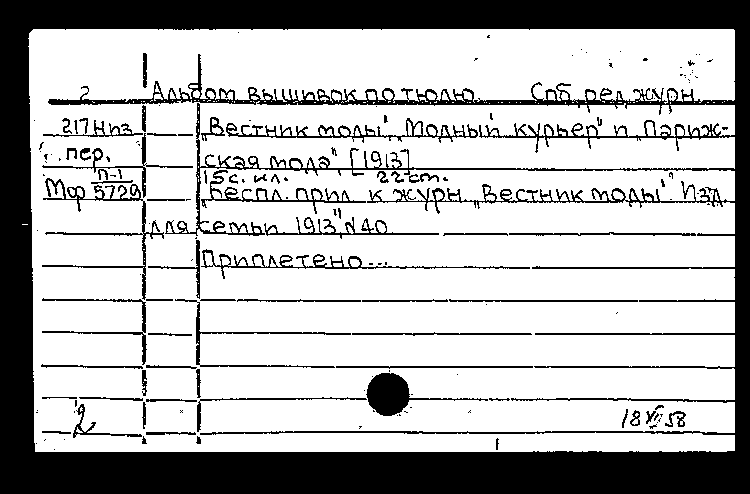 2 Альбом вышивок по тюлю. Спб, ред. журн.
217 Низ „Вестник моды", „Модный курьер" и „Париж-
пер. ская мода", [1913]
П-1 15 с. ил. 22 см.
Мф 5729 „Беспл. прил. к журн. „Вестник моды". Изд.
для семьи. 1913, №40
Приплетено...
2 18 XII 58